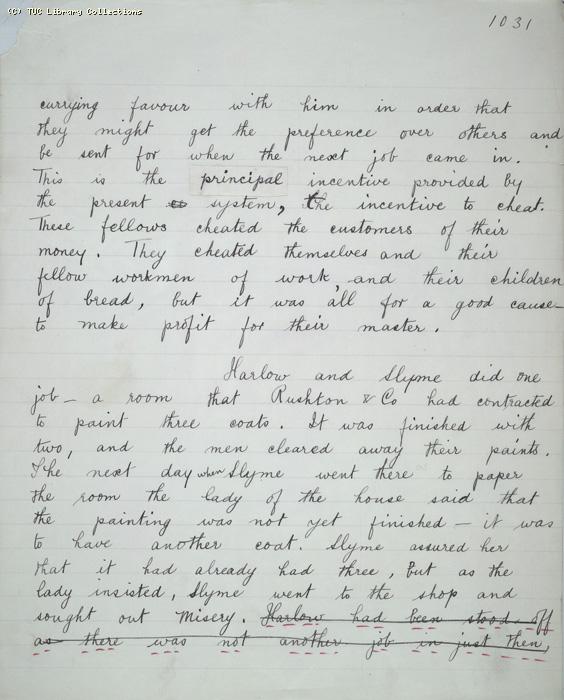 (C) TUC Library Collections
1031
currying favour with him in order that
they might get the preference over others and
be sent for when the next job came in.
This is the principal incentive provided by
the present system, the incentive to cheat.
These fellows cheated the customers of their
money. They cheated themselves and their
fellow workmen of work, and their children
of bread, but it was all for a good cause—
to make profit for their master.
Harlow and Slyme did one
job — a room that Rushton & Co had contracted
to paint three coats. It was finished with
two, and the men cleared away their paints.
The next day when Slyme went there to paper
the room the lady of the house said that
the painting was not yet finished — it was
to have another coat. Slyme assured her
that it had already had three, but as the
lady insisted, Slyme went to the shop and
sought out Misery. Harlow had been stood off
as there was not another job in just then,